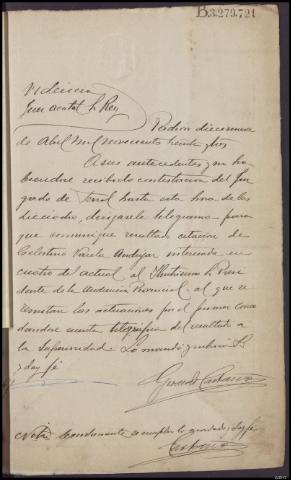 B.3.279.721
Providencia
Juez acctal Sr Rey
Padrón diecinueve
de Abril mil novecientos treinta y tres
A sus antecedentes y no ha-
biendose recibido contestacion del Juz-
gado de Ferrol hasta esta hora de las
dieciocho, dirijasele telegrama para
que comunique resultado citacion de
Celestino Varela Andujar interesada en
cuatro del actual al Ilustrisimo Sr Presi
dente de la Audiencia Provincial al que se
remitan las actuaciones por el primer correo
dandose cuenta telegrafica del resultado a
la Superioridad. Lo mandó y rubrica S.S.
y doy fe
Gerardo
Nota Seguidamente se cumple lo acordado, doy fe